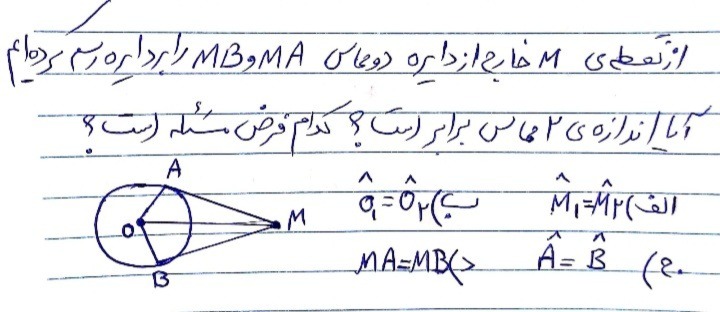 از نقطه‌ی M خارج از دایره دو مماس MA و MB را بر دایره رسم کرده‌ایم
آیا اندازه‌ی ۲ مماس برابر است؟ کدام فرض مسئله است؟
الف) M̂₁=M̂₂ ب) Ô₁=Ô₂
ج) Â=B̂ د) MA=MB
A
O M
B